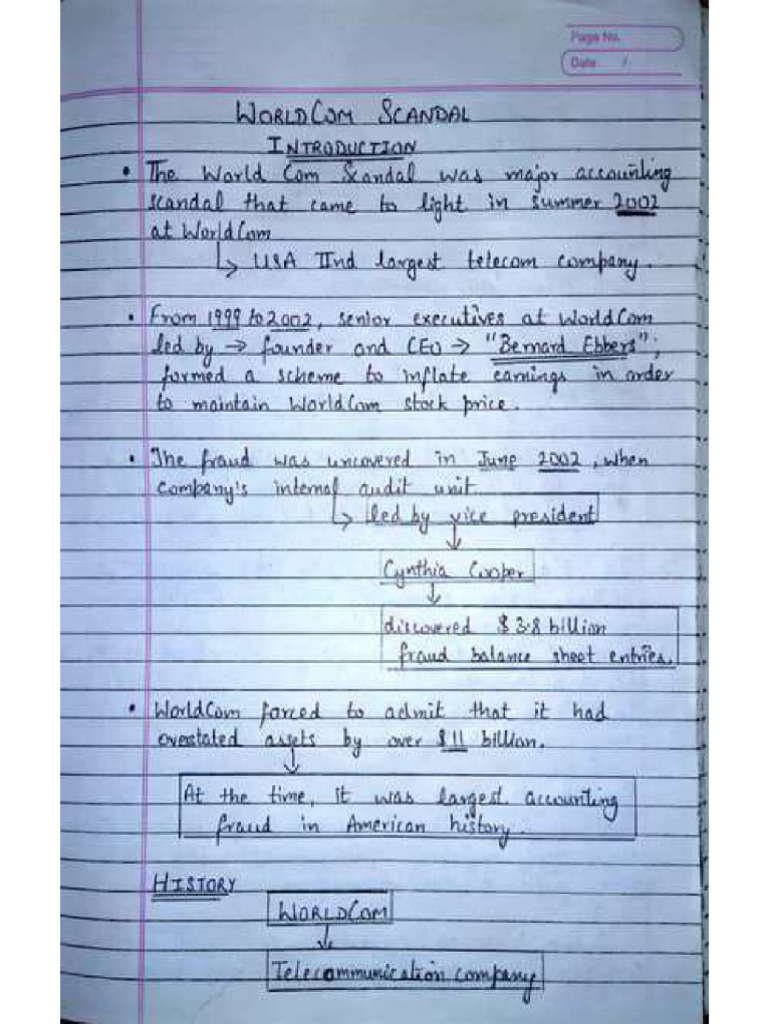 Page No.
Date /
WORLDCOM SCANDAL
INTRODUCTION
• The World Com Scandal was major accounting
scandal that came to light in summer 2002
at WorldCom
↳ USA IInd largest telecom company.
• From 1999 to 2002, senior executives at WorldCom
led by → founder and CEO → "Bernard Ebbers";
formed a scheme to inflate earnings in order
to maintain WorldCom stock price.
• The fraud was uncovered in June 2002, when
company's internal audit unit
↳ led by vice president
↓
Cynthia Cooper
↓
discovered $3.8 billion
fraud balance sheet entries.
• WorldCom forced to admit that it had
overstated assets by over $11 billion.
↓
At the time, it was largest accounting
fraud in American history.
HISTORY
WORLDCOM
↓
Telecommunication company